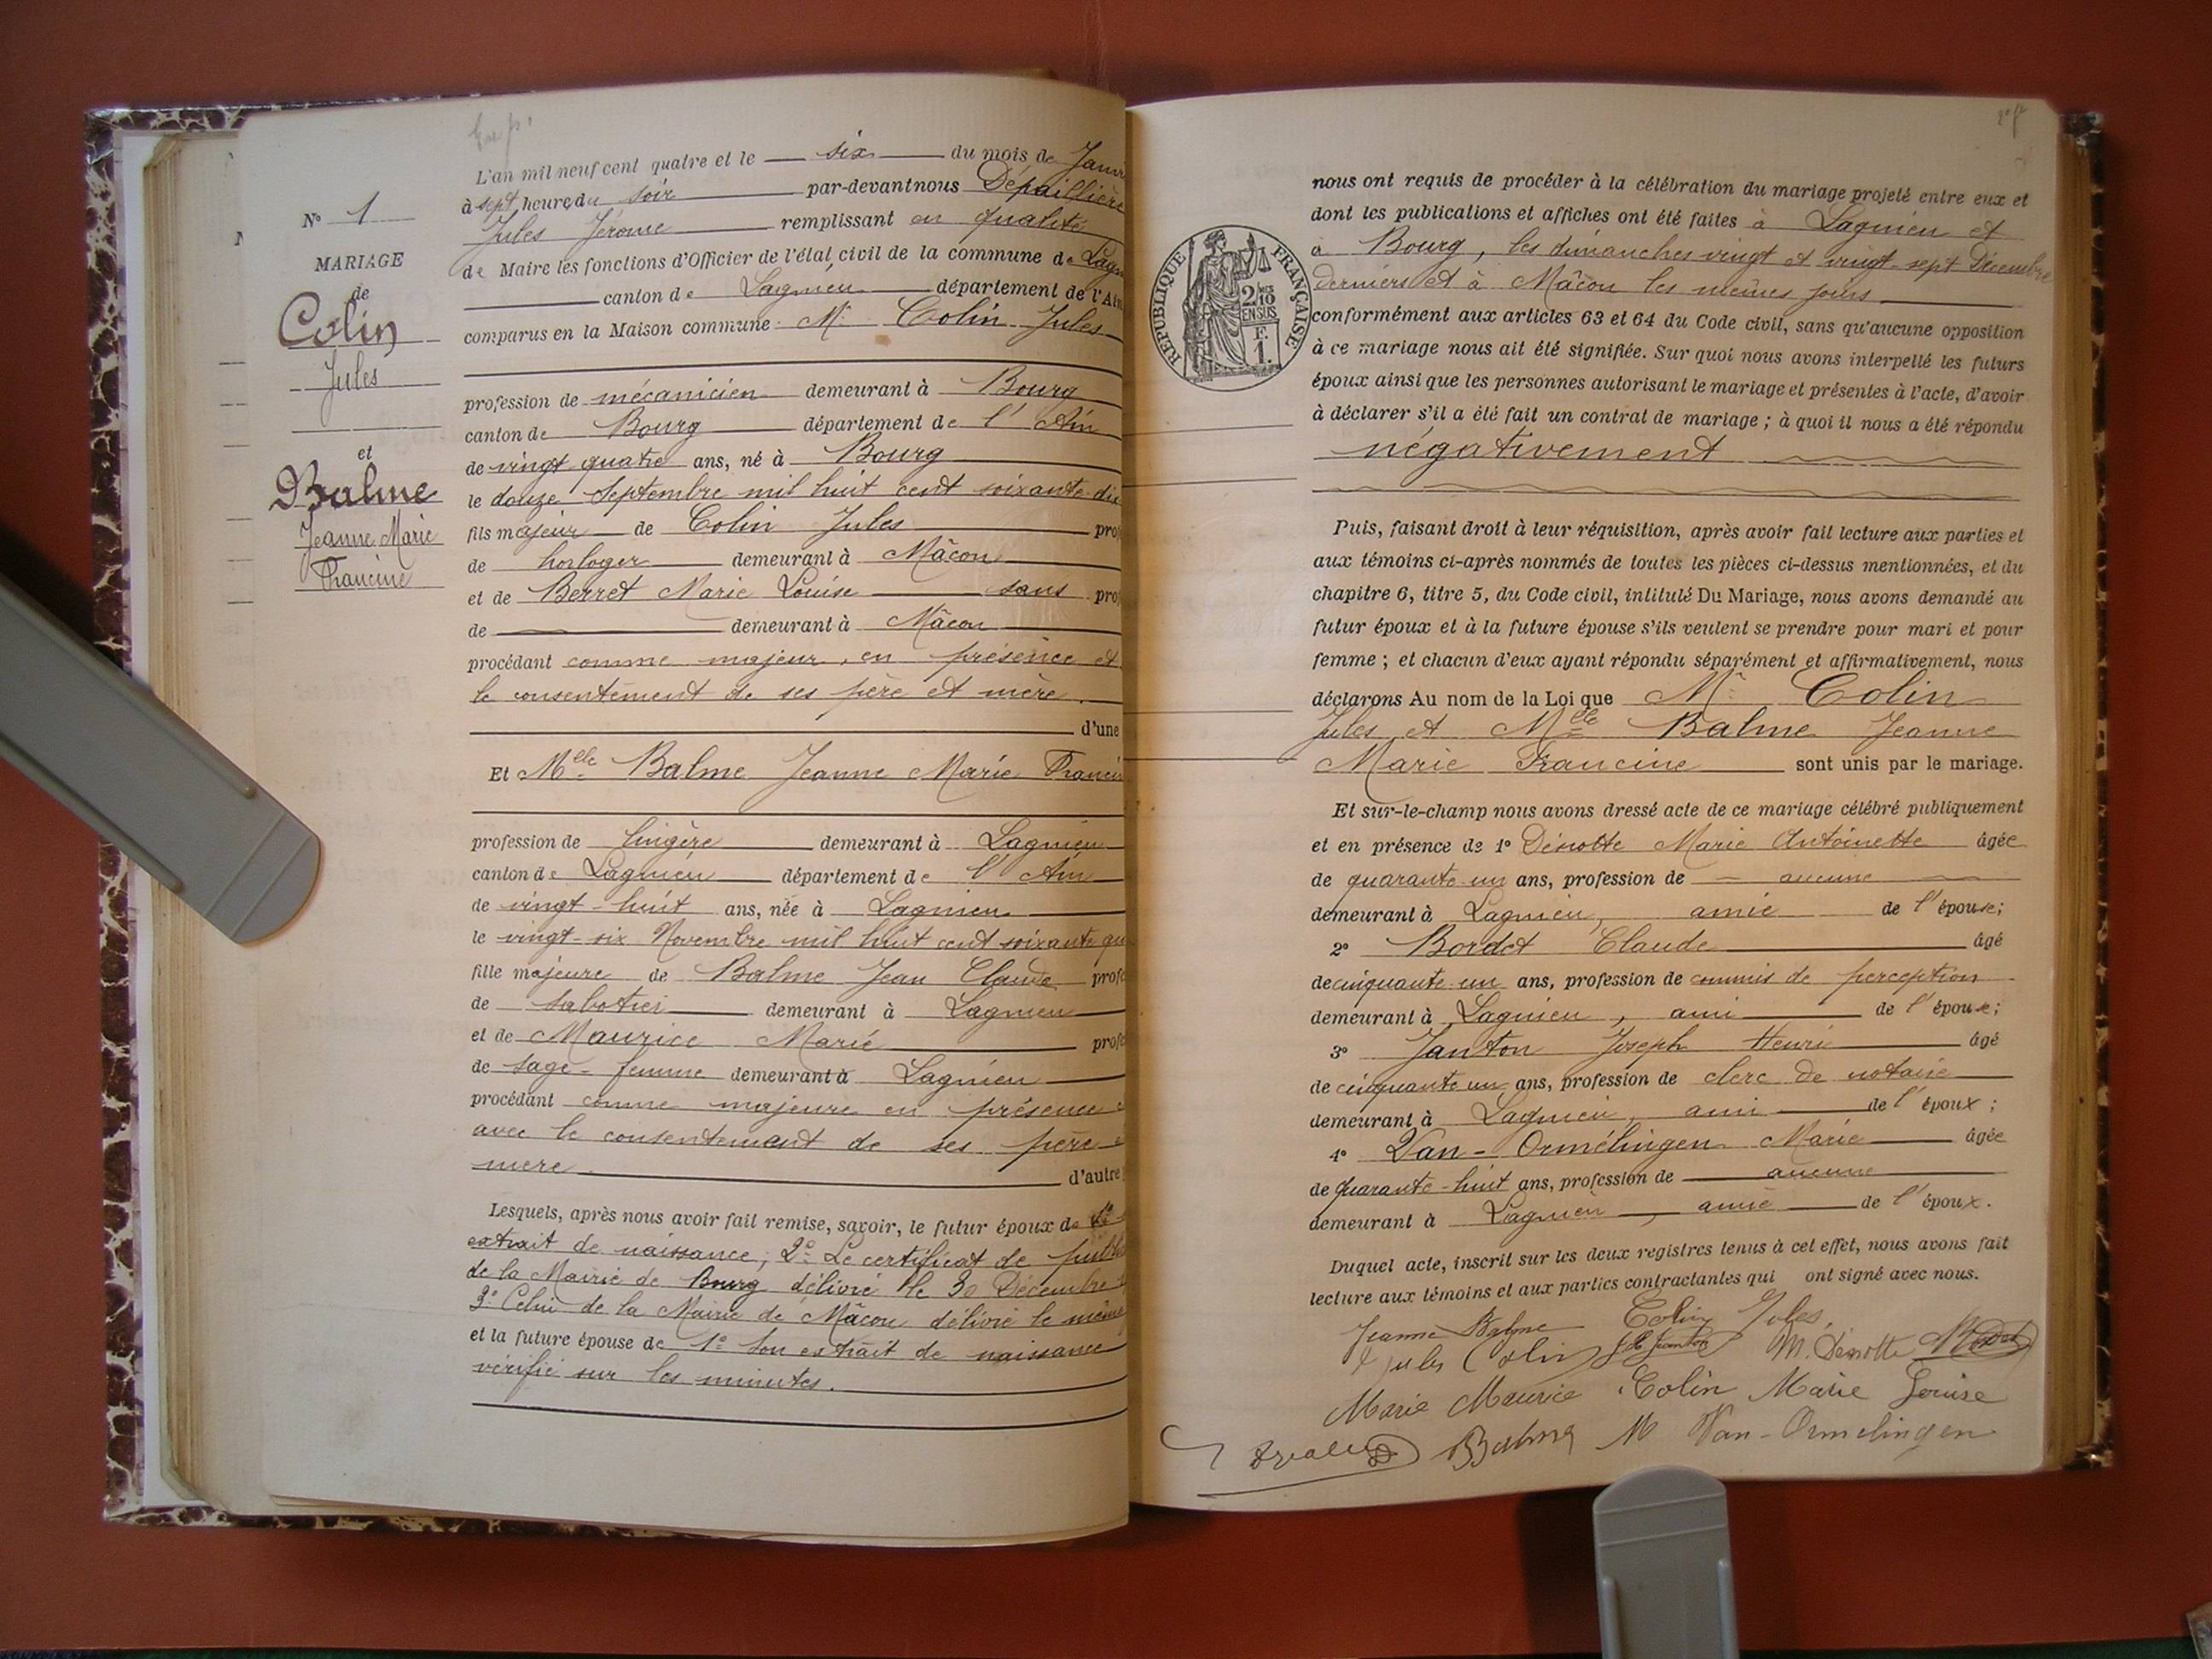 N° 1
MARIAGE
de
Colin
Jules
et
Balme
Jeanne Marie
Francine
L'an mil neuf cent quatre et le six du mois de Janvi
à sept heures du soir par-devant nous Dépaillière
Jules Jérome remplissant en qualité
de Maire les fonctions d'Officier de l'état civil de la commune de Lagn
canton de Lagnieu département de l'Ain
comparus en la Maison commune : Mr Colin Jules
profession de mécanicien demeurant à Bourg
canton de Bourg département de l'Ain
de vingt quatre ans, né à Bourg
le douze Septembre mil huit cent soixante-dix
fils majeur de Colin Jules prof
de horloger demeurant à Mâcon
et de Berret Marie Louise sans prof
de demeurant à Mâcon
procédant comme majeur, en présence et
le consentement de ses père et mère.
d'une
Et Melle Balme Jeanne Marie Francin
profession de lingère demeurant à Lagnieu
canton de Lagnieu département de l'Ain
de vingt-huit ans, née à Lagnieu
le vingt-six Novembre mil huit cent soixante qu
fille majeure de Balme Jean Claude profe
de sabotier demeurant à Lagnieu
et de Maurice Marie profe
de sage-femme demeurant à Lagnieu
procédant comme majeure en présence e
avec le consentement de ses père e
mère d'autre
Lesquels, après nous avoir fait remise, savoir, le futur époux de 1°
extrait de naissance ; 2° Le certificat de public
de la Mairie de Bourg délivré le 30 Décembre
3° Celui de la Mairie de Mâcon délivré le même
et la future épouse de 1° Son extrait de naissance
vérifié sur les minutes.
nous ont requis de procéder à la célébration du mariage projeté entre eux et
dont les publications et affiches ont été faites à Lagnieu et
à Bourg, les dimanches vingt et vingt-sept Décembre
derniers et à Mâcon les mêmes jours
RÉPUBLIQUE FRANÇAISE
2/10
EN SUS
F.
1.
conformément aux articles 63 et 64 du Code civil, sans qu'aucune opposition
à ce mariage nous ait été signifiée. Sur quoi nous avons interpellé les futurs
époux ainsi que les personnes autorisant le mariage et présentes à l'acte, d'avoir
à déclarer s'il a été fait un contrat de mariage ; à quoi il nous a été répondu
négativement
Puis, faisant droit à leur réquisition, après avoir fait lecture aux parties et
aux témoins ci-après nommés de toutes les pièces ci-dessus mentionnées, et du
chapitre 6, titre 5, du Code civil, intitulé Du Mariage, nous avons demandé au
futur époux et à la future épouse s'ils veulent se prendre pour mari et pour
femme ; et chacun d'eux ayant répondu séparément et affirmativement, nous
déclarons Au nom de la Loi que Mr Colin
Jules et Melle Balme Jeanne
Marie Francine sont unis par le mariage.
Et sur-le-champ nous avons dressé acte de ce mariage célébré publiquement
et en présence de 1° Marie Antoinette âgée
de quarante-un ans, profession de aucune
demeurant à Lagnieu, amie de l'épouse ;
2° Bordet Claude âgé
de cinquante-un ans, profession de commis de perception
demeurant à Lagnieu, ami de l'épouse ;
3° Janton Joseph Henri âgé
de cinquante un ans, profession de clerc de notaire
demeurant à Lagnieu, ami de l'époux ;
4° Van-Ormélingen Marie âgée
de quarante-huit ans, profession de aucune
demeurant à Lagnieu, amie de l'époux.
Duquel acte, inscrit sur les deux registres tenus à cet effet, nous avons fait
lecture aux témoins et aux parties contractantes qui ont signé avec nous.
Jeanne Balme Colin Jules,
Jules Colin
Marie Maurice Colin Marie Louise
Balme M Van-Ormelingen